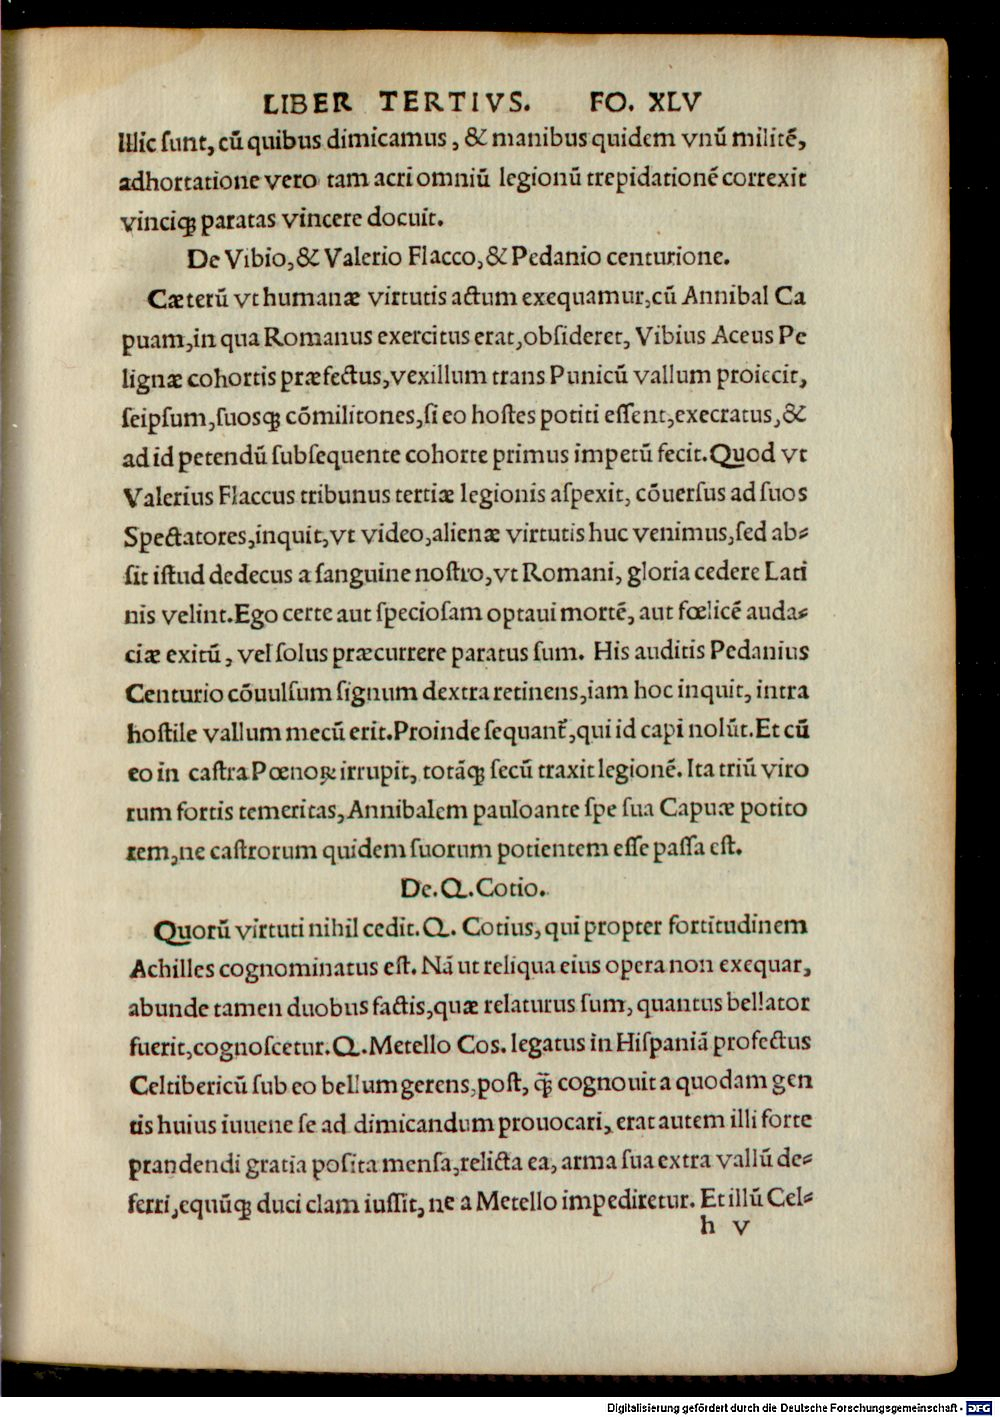 LIBER TERTIVS. FO. XLV
Illic sunt, cũ quibus dimicamus, & manibus quidem vnũ militẽ,
adhortatione vero tam acri omniũ legionũ trepidationẽ correxit
vinciq́; paratas vincere docuit.
De Vibio, & Valerio Flacco, & Pedanio centurione.
Cæterũ vt humanæ virtutis actum exequamur, cũ Annibal Ca
puam, in qua Romanus exercitus erat, obsideret, Vibius Aceus Pe
lignæ cohortis præfectus, vexillum trans Punicũ vallum proiecit,
seipsum, suosq́; cõmilitones, si eo hostes potiti essent, execratus, &
ad id petendũ subsequente cohorte primus impetũ fecit. Quod vt
Valerius Flaccus tribunus tertiæ legionis aspexit, cõuersus ad suos
Spectatores, inquit, vt video, alienæ virtutis huc venimus, sed ab⸗
sit istud dedecus a sanguine nostro, vt Romani, gloria cedere Lati
nis velint. Ego certe aut speciosam optaui mortẽ, aut fœlicẽ auda⸗
ciæ exitũ, vel solus præcurrere paratus sum. His auditis Pedanius
Centurio cõuulsum signum dextra retinens, iam hoc inquit, intra
hostile vallum mecũ erit. Proinde sequant᷑, qui id capi nolũt. Et cũ
eo in castra Pœnoꝝ irrupit, totãq́; secũ traxit legionẽ. Ita triũ viro
rum fortis temeritas, Annibalem pauloante spe sua Capuæ potito
rem, ne castrorum quidem suorum potientem esse passa est.
De. Q. Cotio.
Quorũ virtuti nihil cedit. Q. Cotius, qui propter fortitudinem
Achilles cognominatus est. Nã ut reliqua eius opera non exequar,
abunde tamen duobus factis, quæ relaturus sum, quantus bellator
fuerit, cognoscetur. Q. Metello Cos. legatus in Hispaniã profectus
Celtibericũ sub eo bellum gerens, post, q̃ cognouit a quodam gen
tis huius iuuene se ad dimicandum prouocari, erat autem illi forte
prandendi gratia posita mensa, relicta ea, arma sua extra vallũ de⸗
ferri, equũq́; duci clam iussit, ne a Metello impediretur. Et illũ Cel⸗
h v
Digitalisierung gefördert durch die Deutsche Forschungsgemeinschaft - DFG